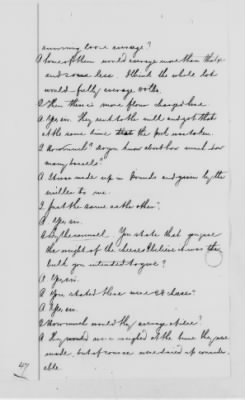 amining loose average?
A Some of them would average more than that &
and some less. I think the whole lot
would fully average 60 lbs.
Q Then there is more flour charged here
A Yes sir. They sent to the mill and got that
at the same time that the pork was taken.
Q How much? do you know about how much how
many barrels?
A It was made up in Pounds and given by the
miller to me.
Q Just the same as the other?
A Yes sir.
Q By the counsel. You state that you gave
the weight of the cheese I believe it was the
bulk you intended to give?
A Yes sir.
Q You stated there were 24 cheese?
A Yes, sir.
Q How much would they average apiece?
A They would weigh at the time they were
made but of course were dried up consider-
able.
47